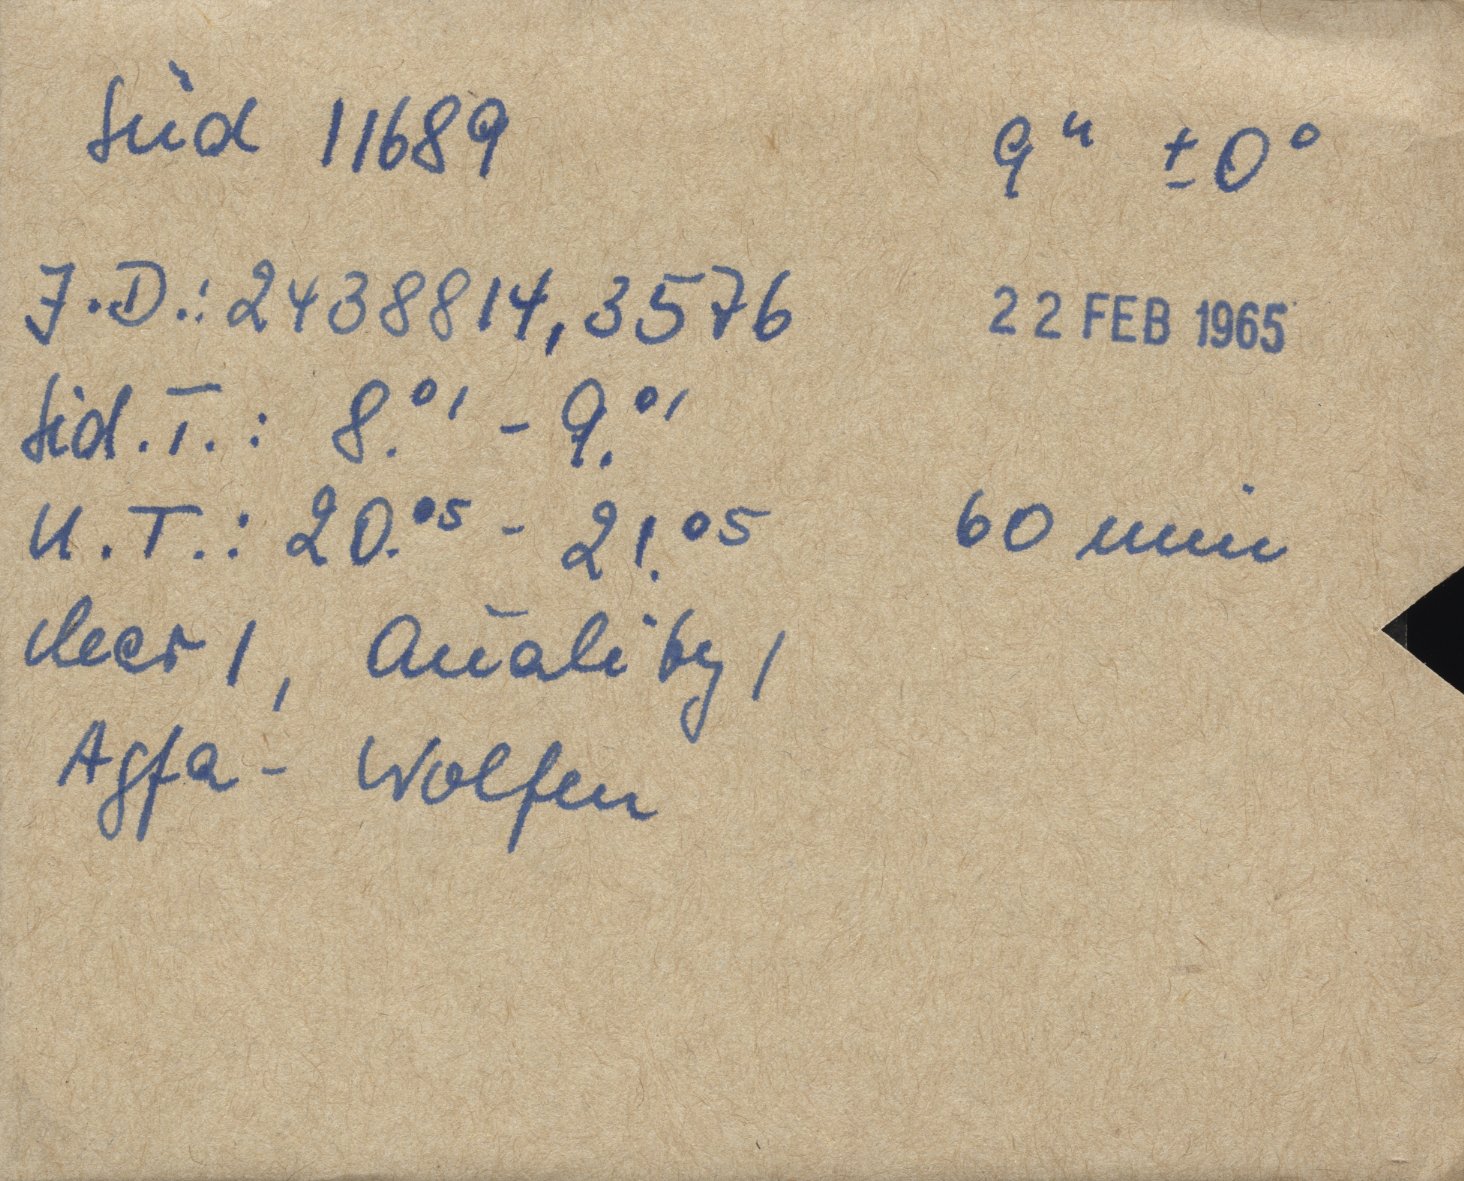 Süd 11689 9ʰ ±0°
J.D.: 2438814,3576 22 FEB 1965
Sid.T.: 8.⁰¹ - 9.⁰¹
U.T.: 20.⁰⁵ - 21.⁰⁵ 60 min
clear 1, Quality 1
Agfa - Wolfen